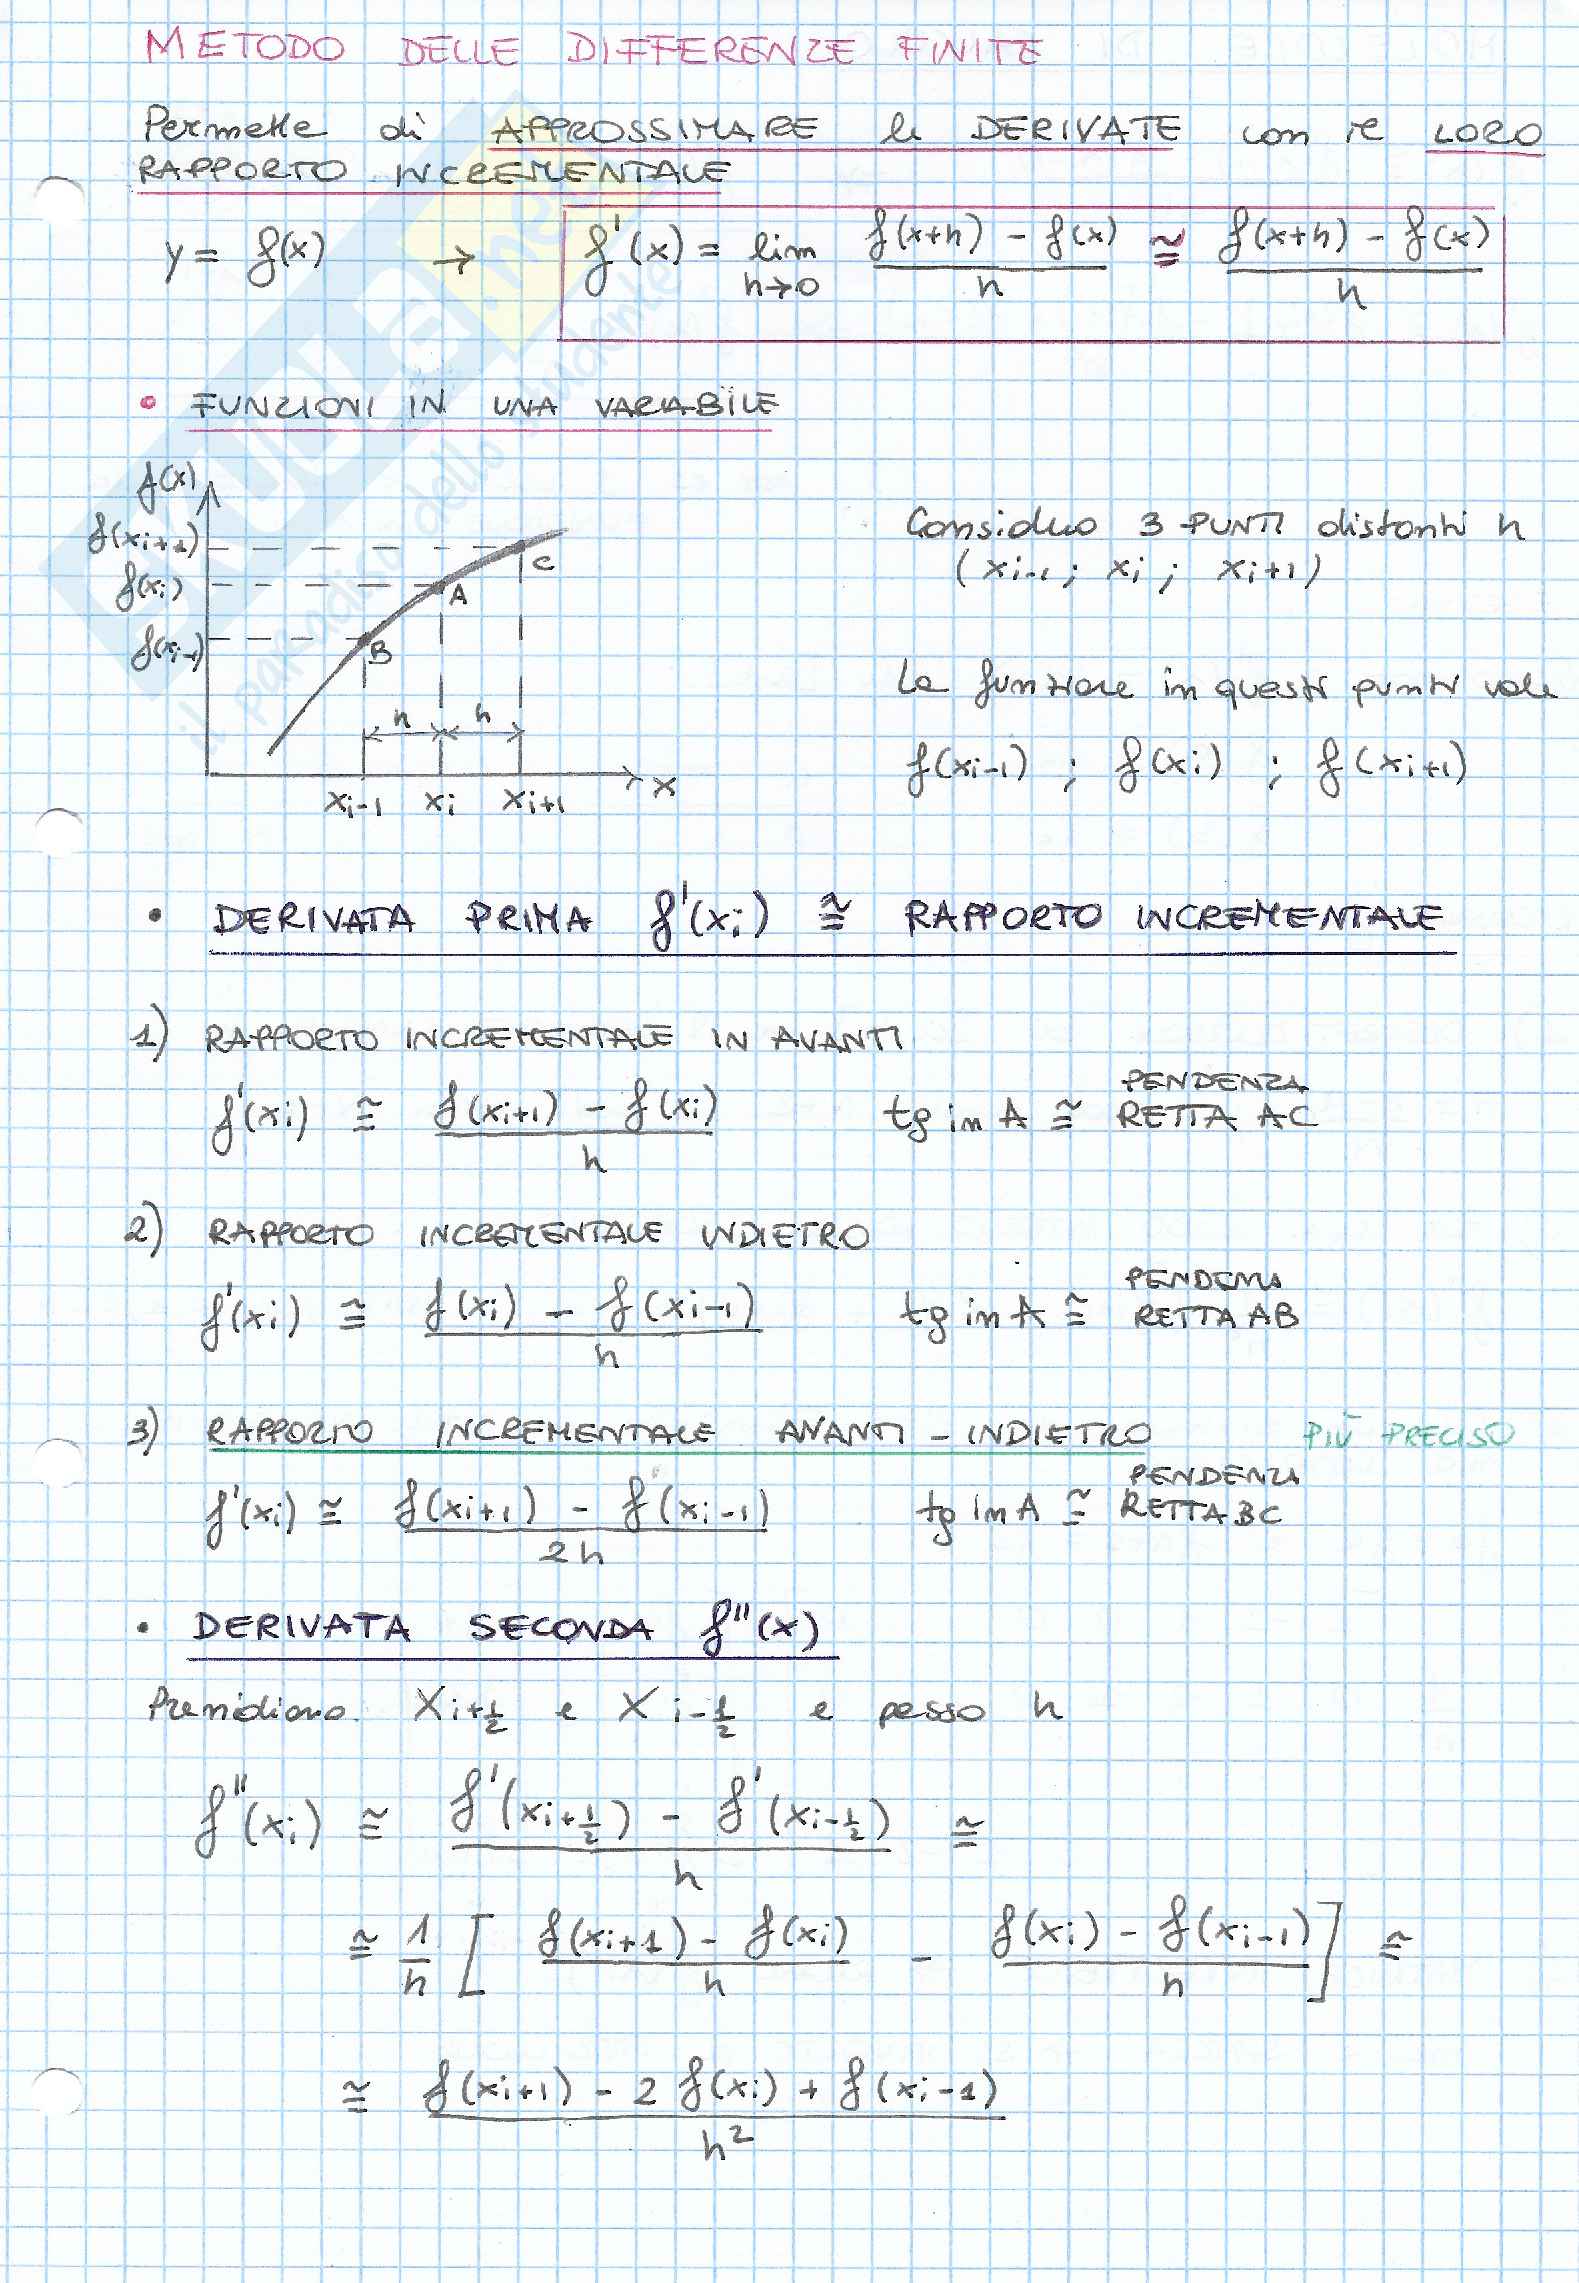 METODO DELLE DIFFERENZE FINITE
Permette di APPROSSIMARE le DERIVATE con il LORO
RAPPORTO INCREMENTALE
y = f(x) → f'(x) = lim h→0 (f(x+h) - f(x))/h ≅ (f(x+h) - f(x))/h
• FUNZIONI IN UNA VARIABILE
f(x)
f(xi+1)
f(xi)
f(xi-1)
C
A
B
h h
xi-1 xi xi+1 x
Considero 3 PUNTI distanti h
(xi-1; xi; xi+1)
La funzione in questi punti vale
f(xi-1) ; f(xi) ; f(xi+1)
• DERIVATA PRIMA f'(xi) ≅ RAPPORTO INCREMENTALE
1) RAPPORTO INCREMENTALE IN AVANTI
f'(xi) ≅ (f(xi+1) - f(xi))/h tg in A ≅ PENDENZA RETTA AC
2) RAPPORTO INCREMENTALE INDIETRO
f'(xi) ≅ (f(xi) - f(xi-1))/h tg in A ≅ PENDENZA RETTA AB
3) RAPPORTO INCREMENTALE AVANTI - INDIETRO PIÙ PRECISO
f'(xi) ≅ (f(xi+1) - f(xi-1))/2h tg in A ≅ PENDENZA RETTA BC
• DERIVATA SECONDA f''(x)
Prendiamo xi+1/2 e xi-1/2 e passo h
f''(xi) ≅ (f'(xi+1/2) - f'(xi-1/2))/h ≅
≅ 1/h [ (f(xi+1) - f(xi))/h - (f(xi) - f(xi-1))/h ] ≅
≅ (f(xi+1) - 2 f(xi) + f(xi-1))/h²
SKUOLA.net
il paradiso dello studente